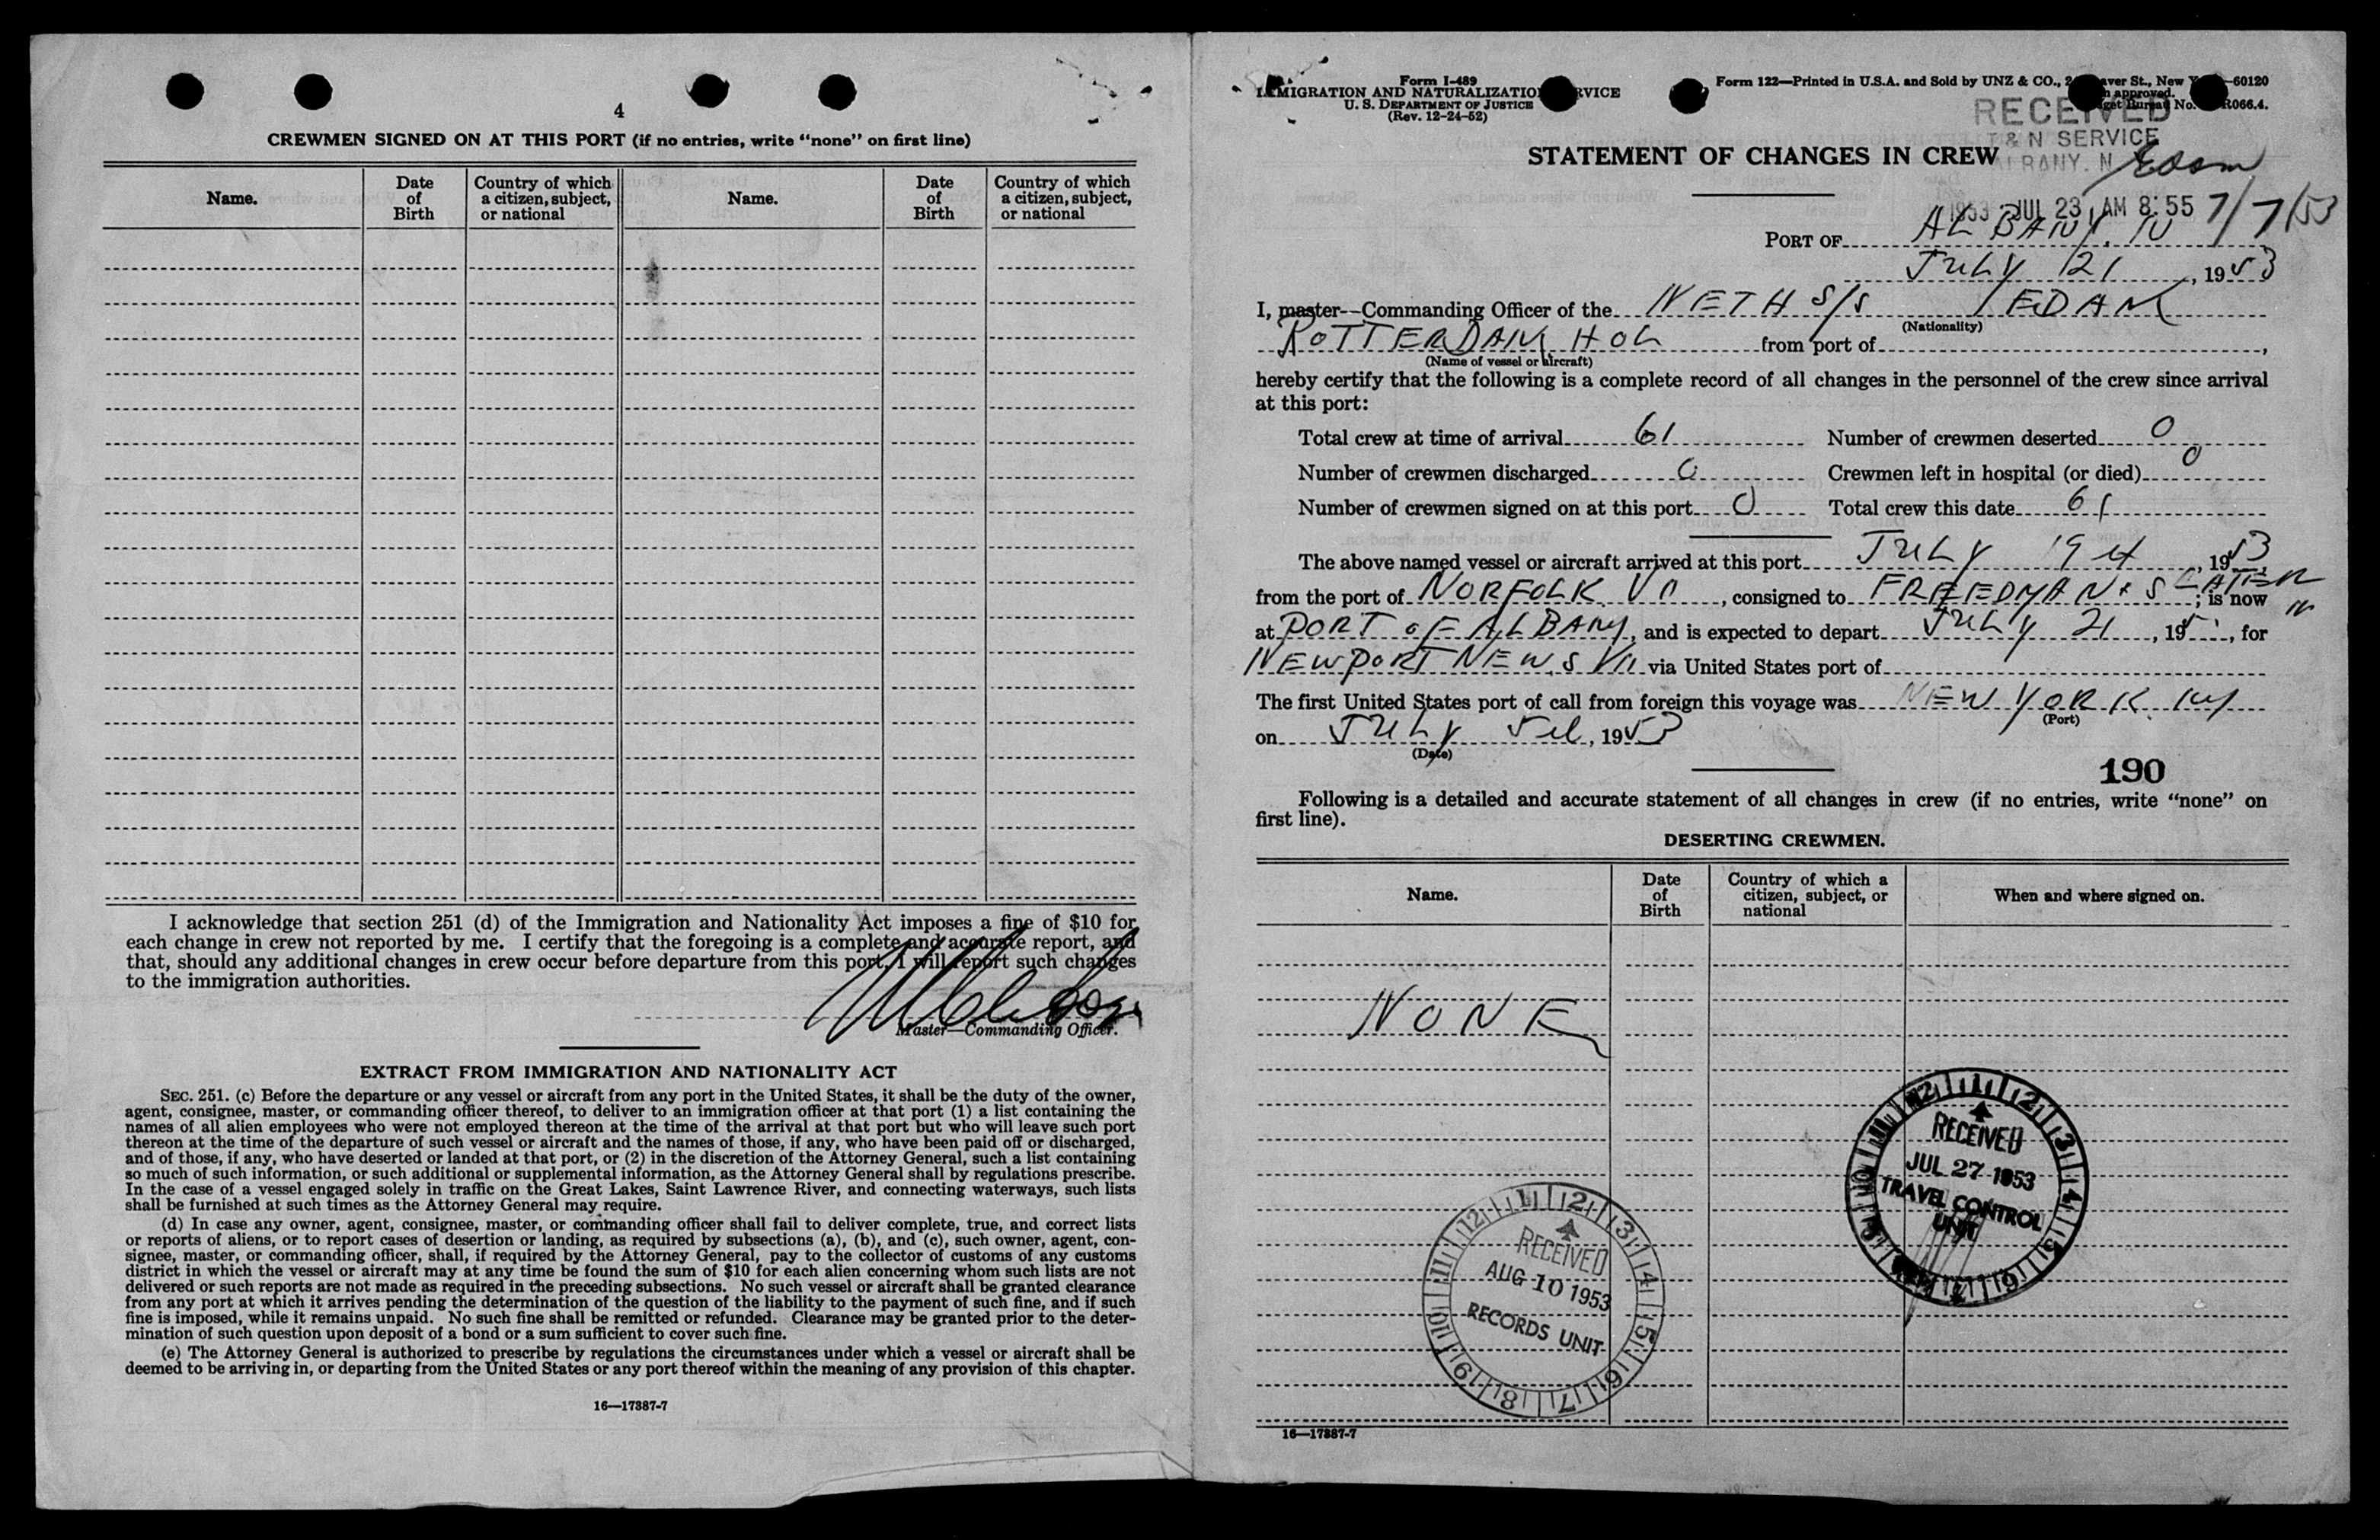 4
CREWMEN SIGNED ON AT THIS PORT (if no entries, write “none” on first line)
Name. Date of Birth Country of which a citizen, subject, or national Name. Date of Birth Country of which a citizen, subject, or national
I acknowledge that section 251 (d) of the Immigration and Nationality Act imposes a fine of $10 for
each change in crew not reported by me. I certify that the foregoing is a complete and accurate report, and
that, should any additional changes in crew occur before departure from this port, I will report such changes
to the immigration authorities.
Master—Commanding Officer.
EXTRACT FROM IMMIGRATION AND NATIONALITY ACT
SEC. 251. (c) Before the departure or any vessel or aircraft from any port in the United States, it shall be the duty of the owner,
agent, consignee, master, or commanding officer thereof, to deliver to an immigration officer at that port (1) a list containing the
names of all alien employees who were not employed thereon at the time of the arrival at that port but who will leave such port
thereon at the time of the departure of such vessel or aircraft and the names of those, if any, who have been paid off or discharged,
and of those, if any, who have deserted or landed at that port, or (2) in the discretion of the Attorney General, such a list containing
so much of such information, or such additional or supplemental information, as the Attorney General shall by regulations prescribe.
In the case of a vessel engaged solely in traffic on the Great Lakes, Saint Lawrence River, and connecting waterways, such lists
shall be furnished at such times as the Attorney General may require.
(d) In case any owner, agent, consignee, master, or commanding officer shall fail to deliver complete, true, and correct lists
or reports of aliens, or to report cases of desertion or landing, as required by subsections (a), (b), and (c), such owner, agent, con-
signee, master, or commanding officer, shall, if required by the Attorney General, pay to the collector of customs of any customs
district in which the vessel or aircraft may at any time be found the sum of $10 for each alien concerning whom such lists are not
delivered or such reports are not made as required in the preceding subsections. No such vessel or aircraft shall be granted clearance
from any port at which it arrives pending the determination of the question of the liability to the payment of such fine, and if such
fine is imposed, while it remains unpaid. No such fine shall be remitted or refunded. Clearance may be granted prior to the deter-
mination of such question upon deposit of a bond or a sum sufficient to cover such fine.
(e) The Attorney General is authorized to prescribe by regulations the circumstances under which a vessel or aircraft shall be
deemed to be arriving in, or departing from the United States or any port thereof within the meaning of any provision of this chapter.
16—17887-7
Form I-489
IMMIGRATION AND NATURALIZATION SERVICE
U. S. DEPARTMENT OF JUSTICE
(Rev. 12-24-52)
Form 122—Printed in U.S.A. and Sold by UNZ & CO., St., New —60120
approved.
No. R066.4.
RECEIVED
I & N SERVICE
ALBANY, N
Edam
1953 JUL 23 AM 8:55 7/7/53
STATEMENT OF CHANGES IN CREW
PORT OF ALBANY. N
JULY 21, 1953
I, master—Commanding Officer of the NETH S/S EDAM
(Nationality)
ROTTERDAM HOL from port of ,
(Name of vessel or aircraft)
hereby certify that the following is a complete record of all changes in the personnel of the crew since arrival
at this port:
Total crew at time of arrival 61 Number of crewmen deserted 0
Number of crewmen discharged 0 Crewmen left in hospital (or died) 0
Number of crewmen signed on at this port 0 Total crew this date 61
The above named vessel or aircraft arrived at this port JULY 19, 1953
from the port of NORFOLK Va, consigned to FREEDMAN & SLATER; is now
at PORT OF ALBANY, and is expected to depart JULY 21, 195, for
NEWPORT NEWS Va via United States port of
The first United States port of call from foreign this voyage was NEW YORK. NY
(Port)
on JULY 5, 1953
(Date)
190
Following is a detailed and accurate statement of all changes in crew (if no entries, write “none” on
first line).
DESERTING CREWMEN.
Name. Date of Birth Country of which a citizen, subject, or national When and where signed on.
NONE
RECEIVED
JUL 27 1953
TRAVEL CONTROL
UNIT
RECEIVED
AUG 10 1953
RECORDS UNIT
16—17887-7